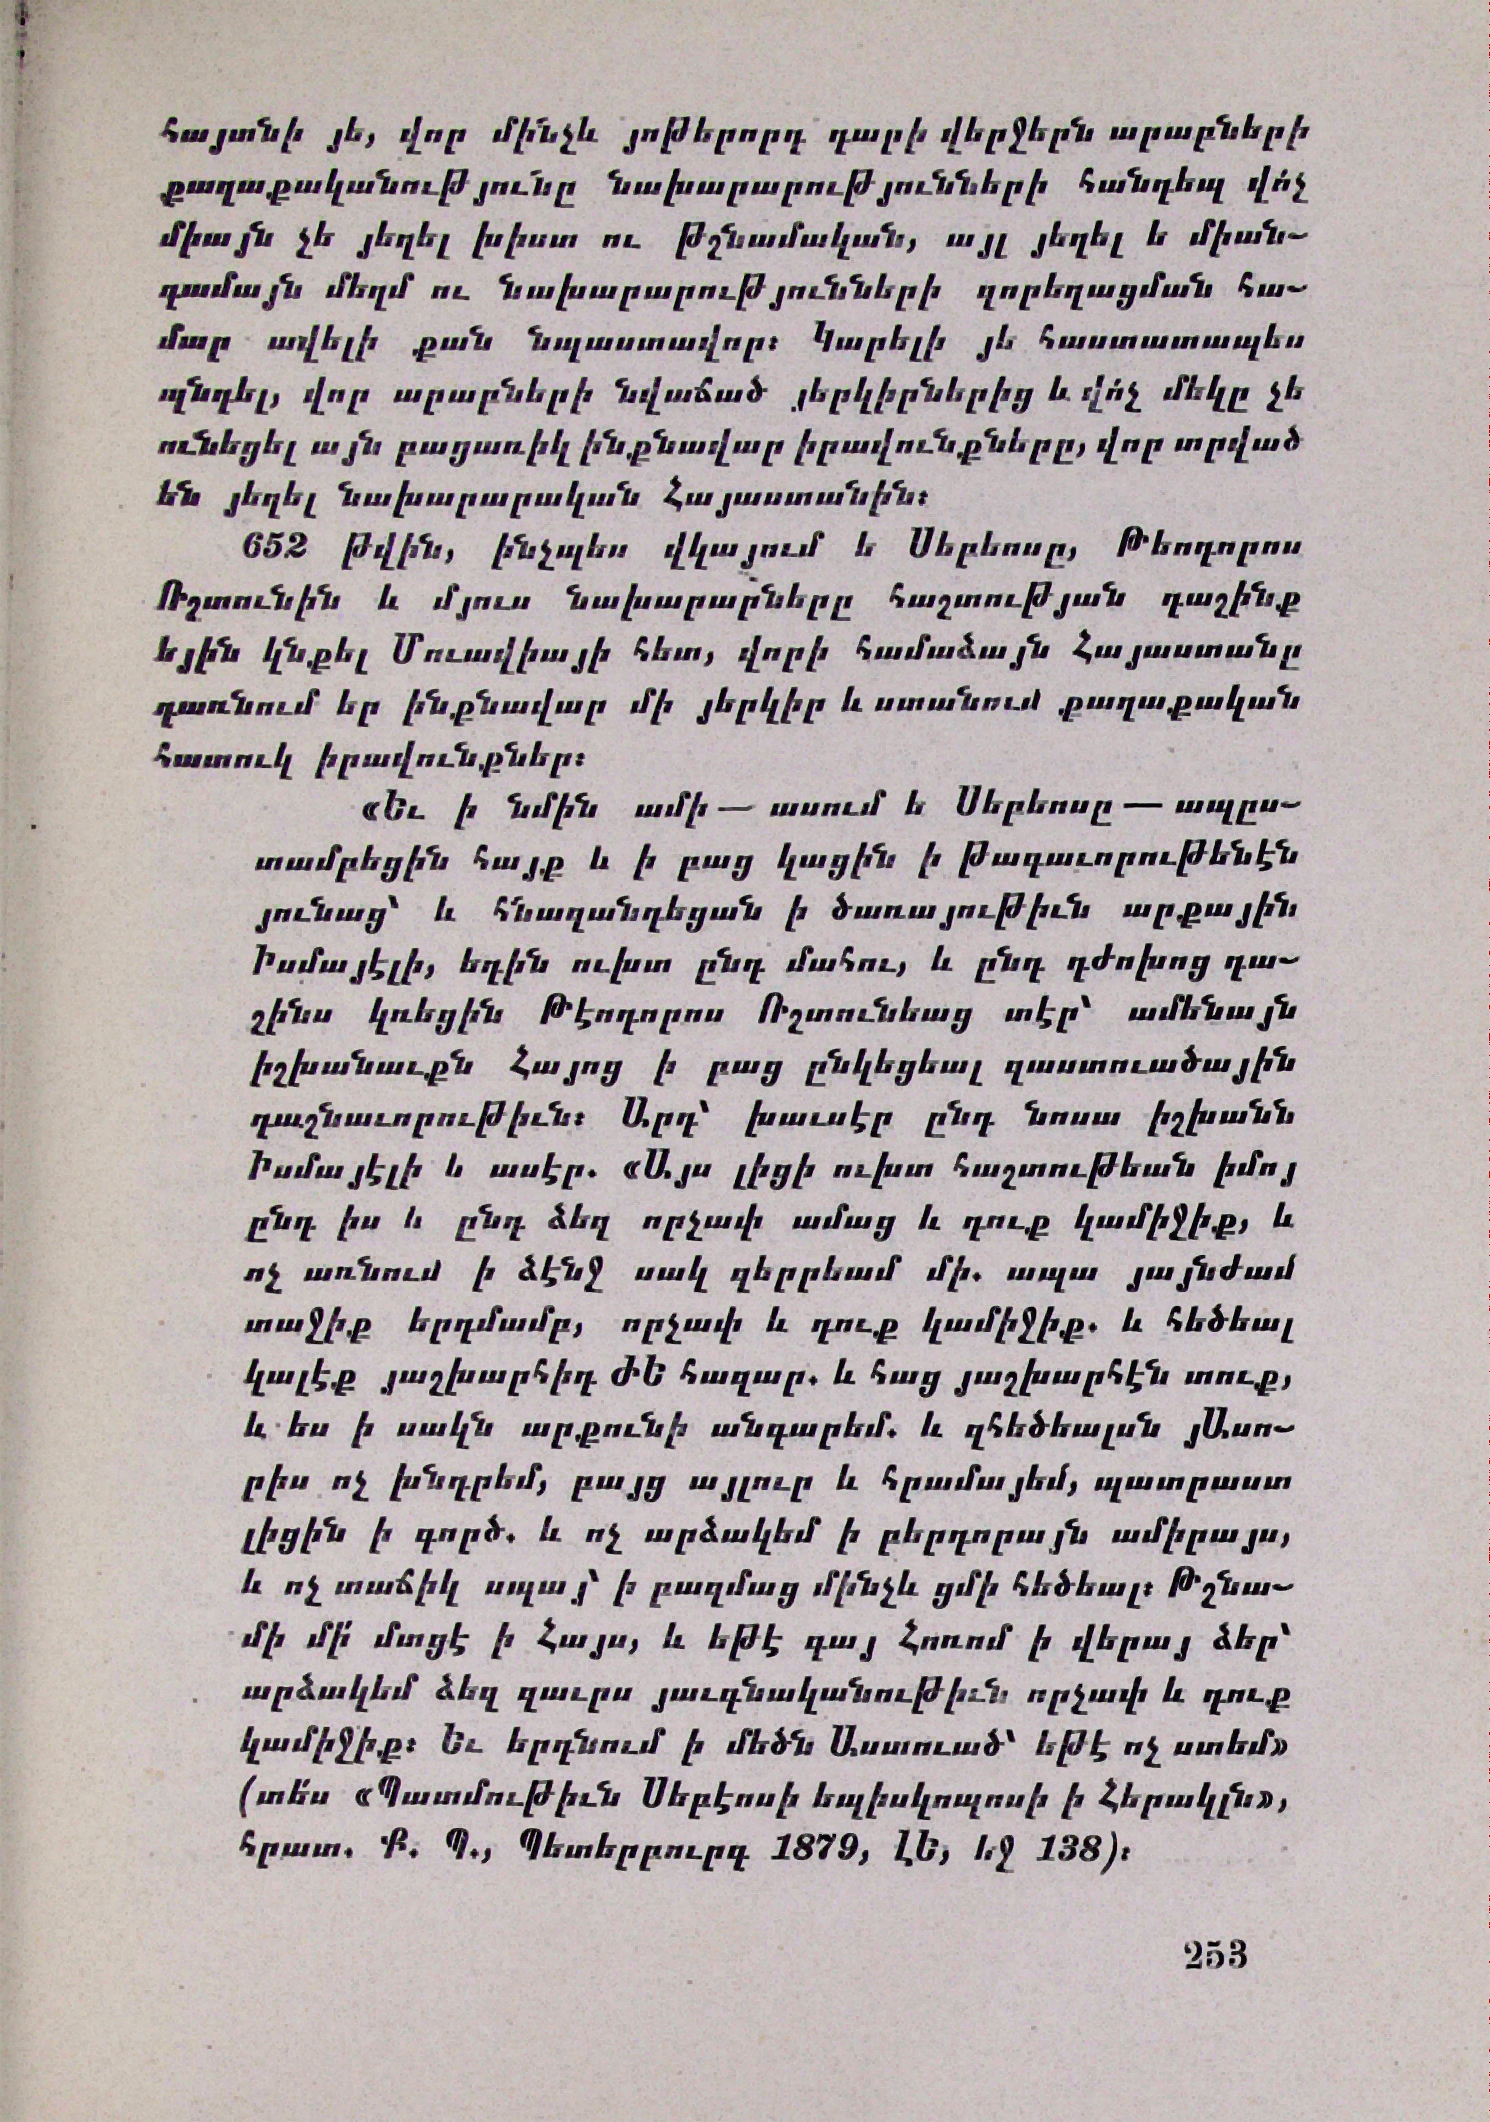 հայտնի յե, վոր մինչև յոթերորդ դարի վերջերն արաբների
քաղաքականությունը նախարարությունների հանդեպ վո՛չ
միայն չե յեղել խիստ ու թշնամական, այլ յեղել ե միան-
գամայն մեղմ ու նախարարությունների զորեղացման հա-
մար ավելի քան նպաստավոր։ Կարելի յե հաստատապես
պնդել, վոր արաբների նվաճած յերկիրներից և վո՛չ մեկը չե
ունեցել այն բացառիկ ինքնավար իրավունքները, վոր տրված
են յեղել նախարարական Հայաստանին։
652 թվին, ինչպես վկայում ե Սեբեոսը, Թեոդորոս
Ռշտունին և մյուս նախարարները հաշտության դաշինք
եյին կնքել Մուավիայի հետ, վորի համաձայն Հայաստանը
դառնում եր ինքնավար մի յերկիր և ստանում քաղաքական
հատուկ իրավունքներ։
«Եւ ի նմին ամի — ասում ե Սեբեոսը — ապըս-
տամբեցին հայք և ի բաց կացին ի թագաւորութենէն
յունաց՝ և հնազանդեցան ի ծառայութիւն արքային
Իսմայէլի, եդին ուխտ ընդ մահու, և ընդ դժոխոց դա-
շինս կռեցին Թէոդորոս Ռշտունեաց տէր՝ ամենայն
իշխանաւքն Հայոց ի բաց ընկեցեալ զաստուածային
դաշնաւորութիւն։ Արդ՝ խաւսէր ընդ նոսա իշխանն
Իսմայէլի և ասէր. «Այս լիցի ուխտ հաշտութեան իմոյ
ընդ իս և ընդ ձեզ որչափ ամաց և դուք կամիջիք, և
ոչ առնում ի ձէնջ սակ զերրեամ մի. ապա յայնժամ
տաջիք երդմամբ, որչափ և դուք կամիջիք. և հեծեալ
կալէք յաշխարհիդ ԺԵ հազար. և հաց յաշխարհէն տուք,
և ես ի սակն արքունի անգարեմ. և զհեծեալսն յԱսո-
րիս ոչ խնդրեմ, բայց այլուր և հրամայեմ, պատրաստ
լիցին ի գործ. և ոչ արձակեմ ի բերդորայն ամիրայս,
և ոչ տաճիկ սպայ՝ ի բազմաց մինչև ցմի հեծեալ։ Թշնա-
մի մի՛ մտցէ ի Հայս, և եթէ գայ Հոռոմ ի վերայ ձեր՝
արձակեմ ձեզ զաւրս յաւգնականութիւն որչափ և դուք
կամիջիք։ Եւ երդնում ի մեծն Աստուած՝ եթէ ոչ ստեմ»
(տե՛ս «Պատմութիւն Սեբէոսի եպիսկոպոսի ի Հերակլն»,
հրատ. Ք. Պ., Պետերբուրգ 1879, ԼԵ, եջ 138)։
253